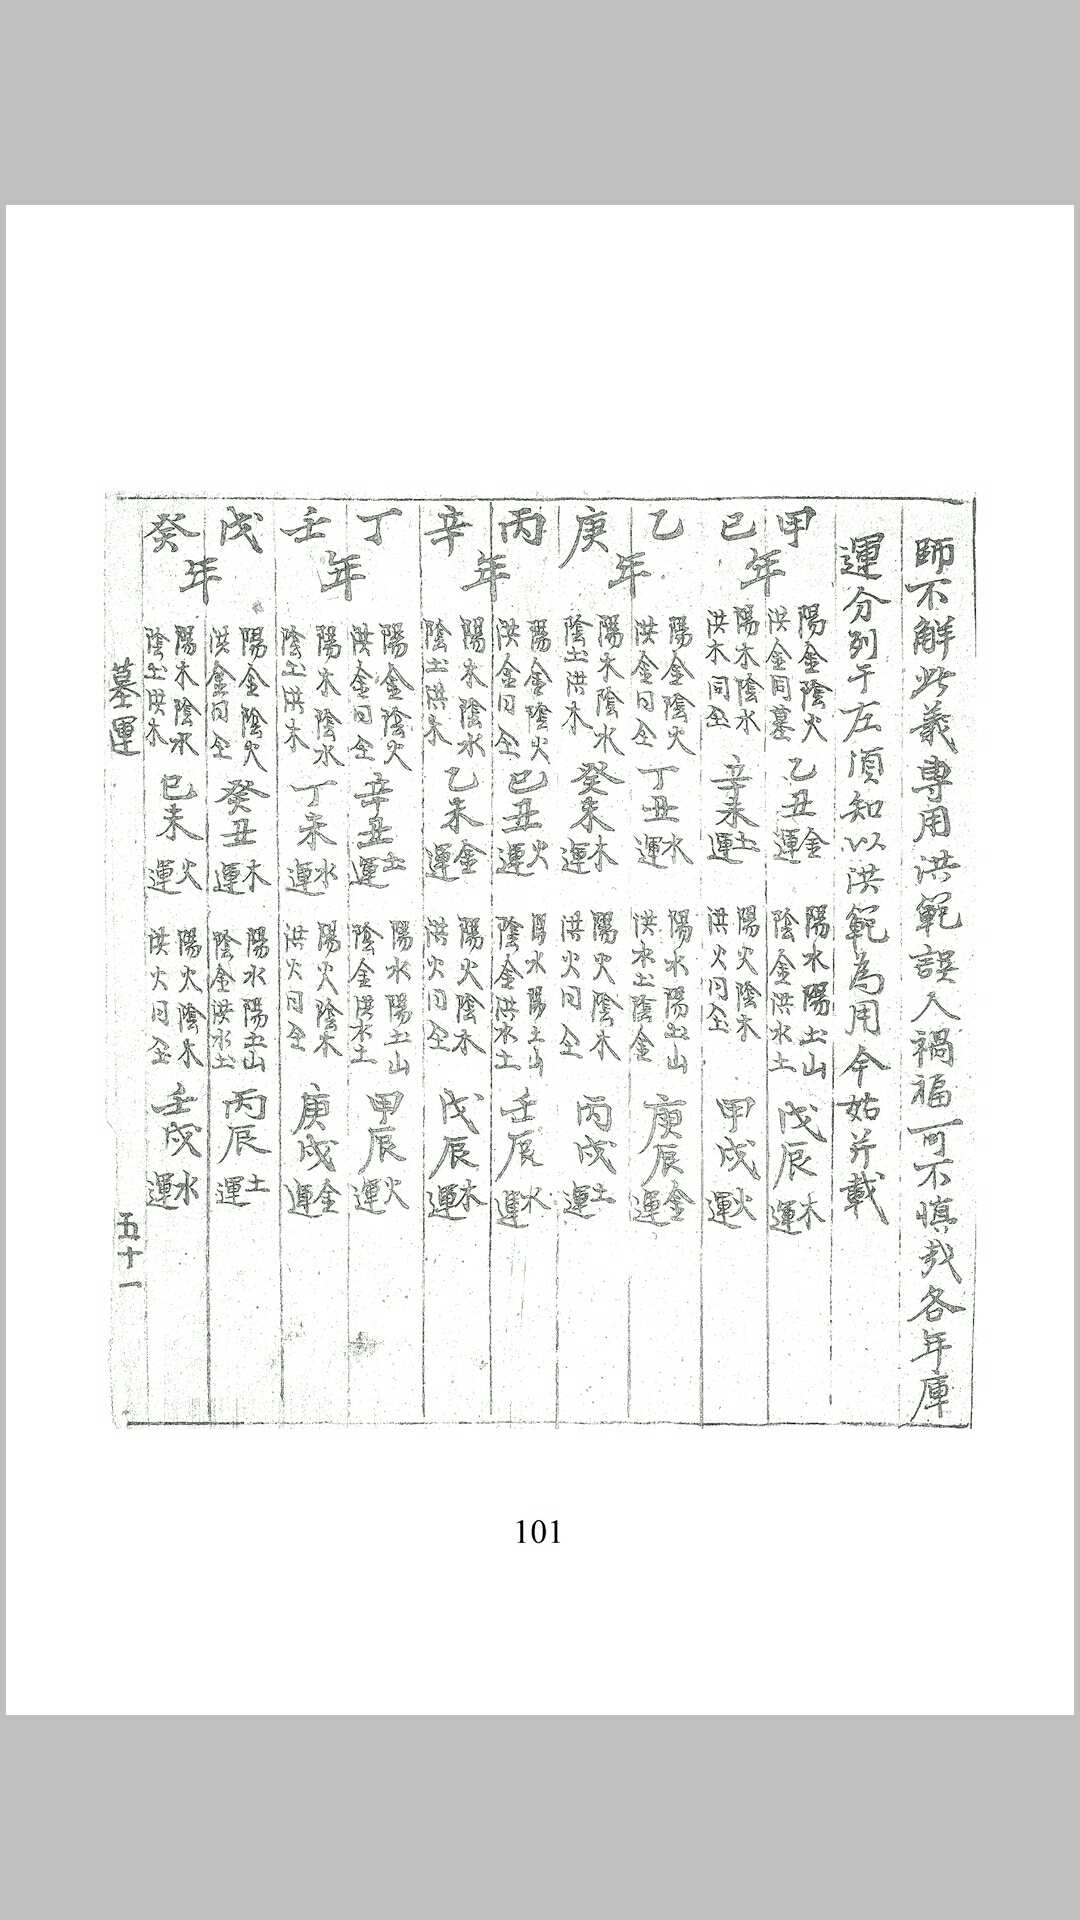 師不觧此義專用洪範誤人禍福可不慎哉各年庫
運分列于左須知以洪範為用今姑并載
甲 陽金陰火 洪金同墓 乙丑 金運 陽水陽土山 陰金洪水土 戊辰 木運
年
己 陽木陰水 洪木同仝 辛未 土運 陽火陰木 洪火同仝 甲戌 火運
乙 陽金陰火 洪金同仝 丁丑 水運 陽水陽土山 洪水土陰金 庚辰 金運
年
庚 陽木陰水 陰土洪木 癸未 木運 陽火陰木 洪火同仝 丙戌 土運
丙 陽金陰火 洪金同仝 己丑 火運 陽水陽土山 陰金洪水土 壬辰 水運
年
辛 陽木陰水 陰土洪木 乙未 金運 陽火陰木 洪火同仝 戊辰 木運
丁 陽金陰火 洪金同仝 辛丑 土運 陽水陽土山 陰金洪水土 甲辰 火運
年
壬 陽木陰水 陰土洪木 丁未 水運 陽火陰木 洪火同仝 庚戌 金運
戊 陽金陰火 洪金同仝 癸丑 木運 陽水陽土山 陰金洪水土 丙辰 土運
年
癸 陽木陰水 陰土洪木 己未 火運 陽火陰木 洪火同仝 壬戌 水運
墓運 五十一
101